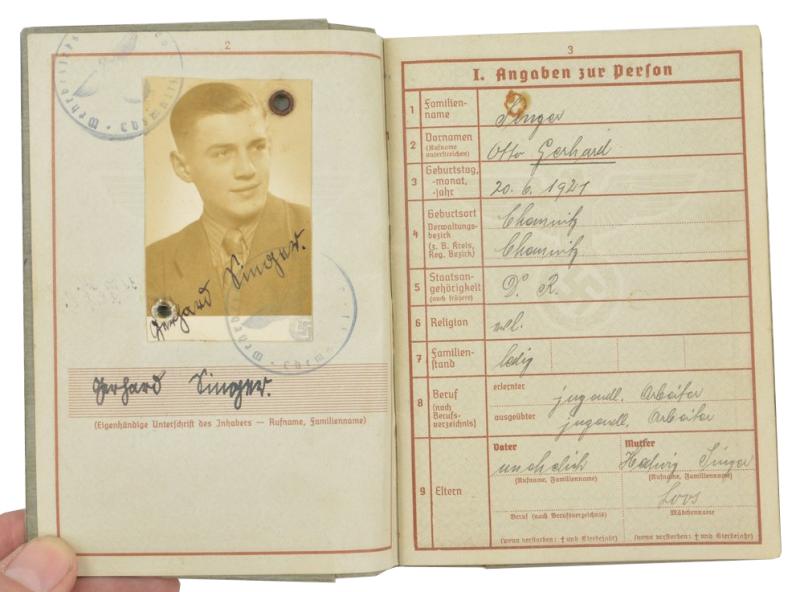 2
Gerhard Singer.
Gerhard Singer.
(Eigenhändige Unterschrift des Inhabers — Rufname, Familienname)
3
I. Angaben zur Person
1 Familien-
name
Singer
2 Vornamen
(Rufname
unterstreichen)
Otto Gerhard
3 Geburtstag,
-monat,
-jahr
20. 6. 1921
4 Geburtsort
Verwaltungs-
bezirk
(z. B. Kreis,
Reg. Bezirk)
Chemnitz
Chemnitz
5 Staatsan-
gehörigkeit
(auch frühere)
D. R.
6 Religion
7 Familien-
stand
ledig
8 Beruf
(nach
Berufs-
verzeichnis)
erlernter
jugendl. Arbeiter
ausgeübter
jugendl. Arbeiter
9 Eltern
Vater
unehelich
(Rufname, Familienname)
Beruf (nach Berufsverzeichnis)
(wenn verstorben: † und Sterbejahr)
Mutter
Hedwig Singer
(Rufname, Familienname)
Loos
Mädchenname
(wenn verstorben: † und Sterbejahr)